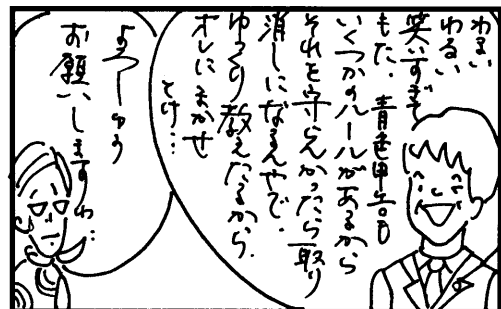 わるい
わるい
笑いすぎて
もた．青色申告も
いくつかのルールがあるから
それを守らんかったら取り
消しになるんやで．
ゆっくり教えたるから．
オレにまかせ
とけ…
よろしゅう
お願いしますわ…